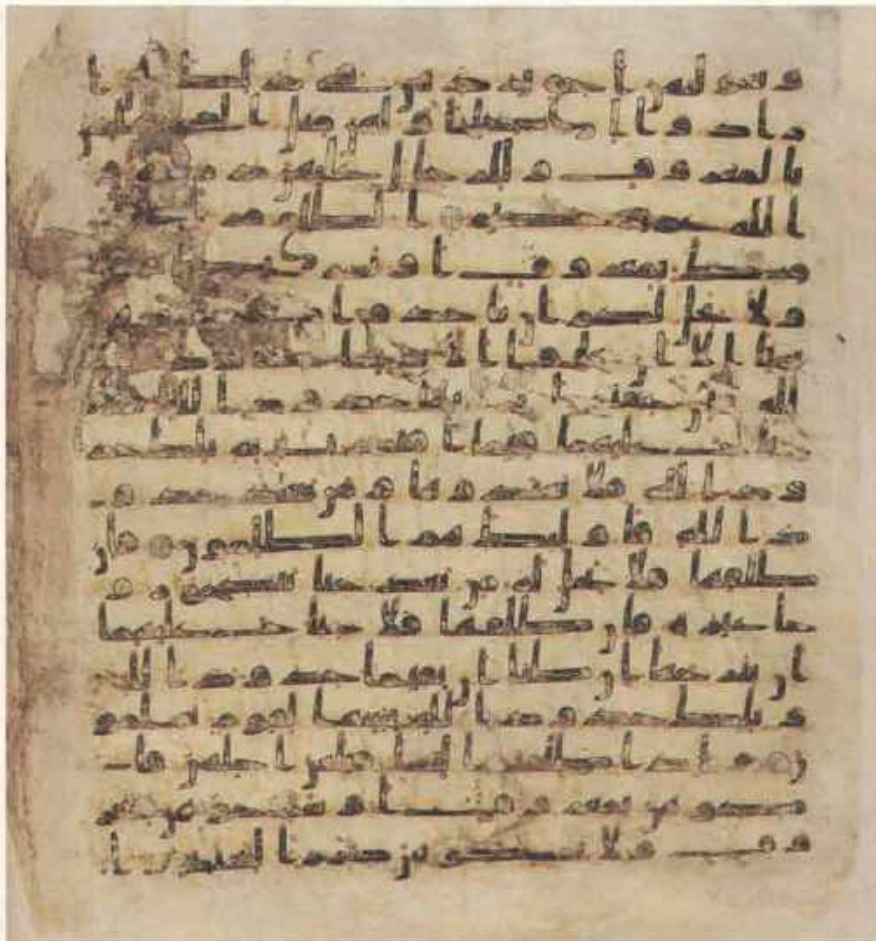 و بعولتهن احق بردهن في ذلك ان ا
رادوا اصلحا ولهن مثل الذي عليهن
بالمعروف وللرجال عليهن درجة و
الله عزيز حكيم الطلق مرتان فا
مساك بمعروف او تسريح باحسن
ولا يحل لكم ان تاخذوا مما اتيتموهن
شيا الا ان يخافا الا يقيما حدود
الله فان خفتم الا يقيما حدود الله
فلا جناح عليهما فيما افتدت به تلك حد
ود الله فلا تعتدوها ومن يتعد حدو
د الله فاولئك هم الظلمون فان
طلقها فلا تحل له من بعد حتى تنكح زو
جا غيره فان طلقها فلا جناح عليهما
ان يتراجعا ان ظنا ان يقيما حدود الله
وتلك حدود الله يبينها لقوم يعلمو
ن واذا طلقتم النسا فبلغن اجلهن فا
مسكوهن بمعروف او سرحوهن بمعر
وف ولا تمسكوهن ضرارا لتعتدوا